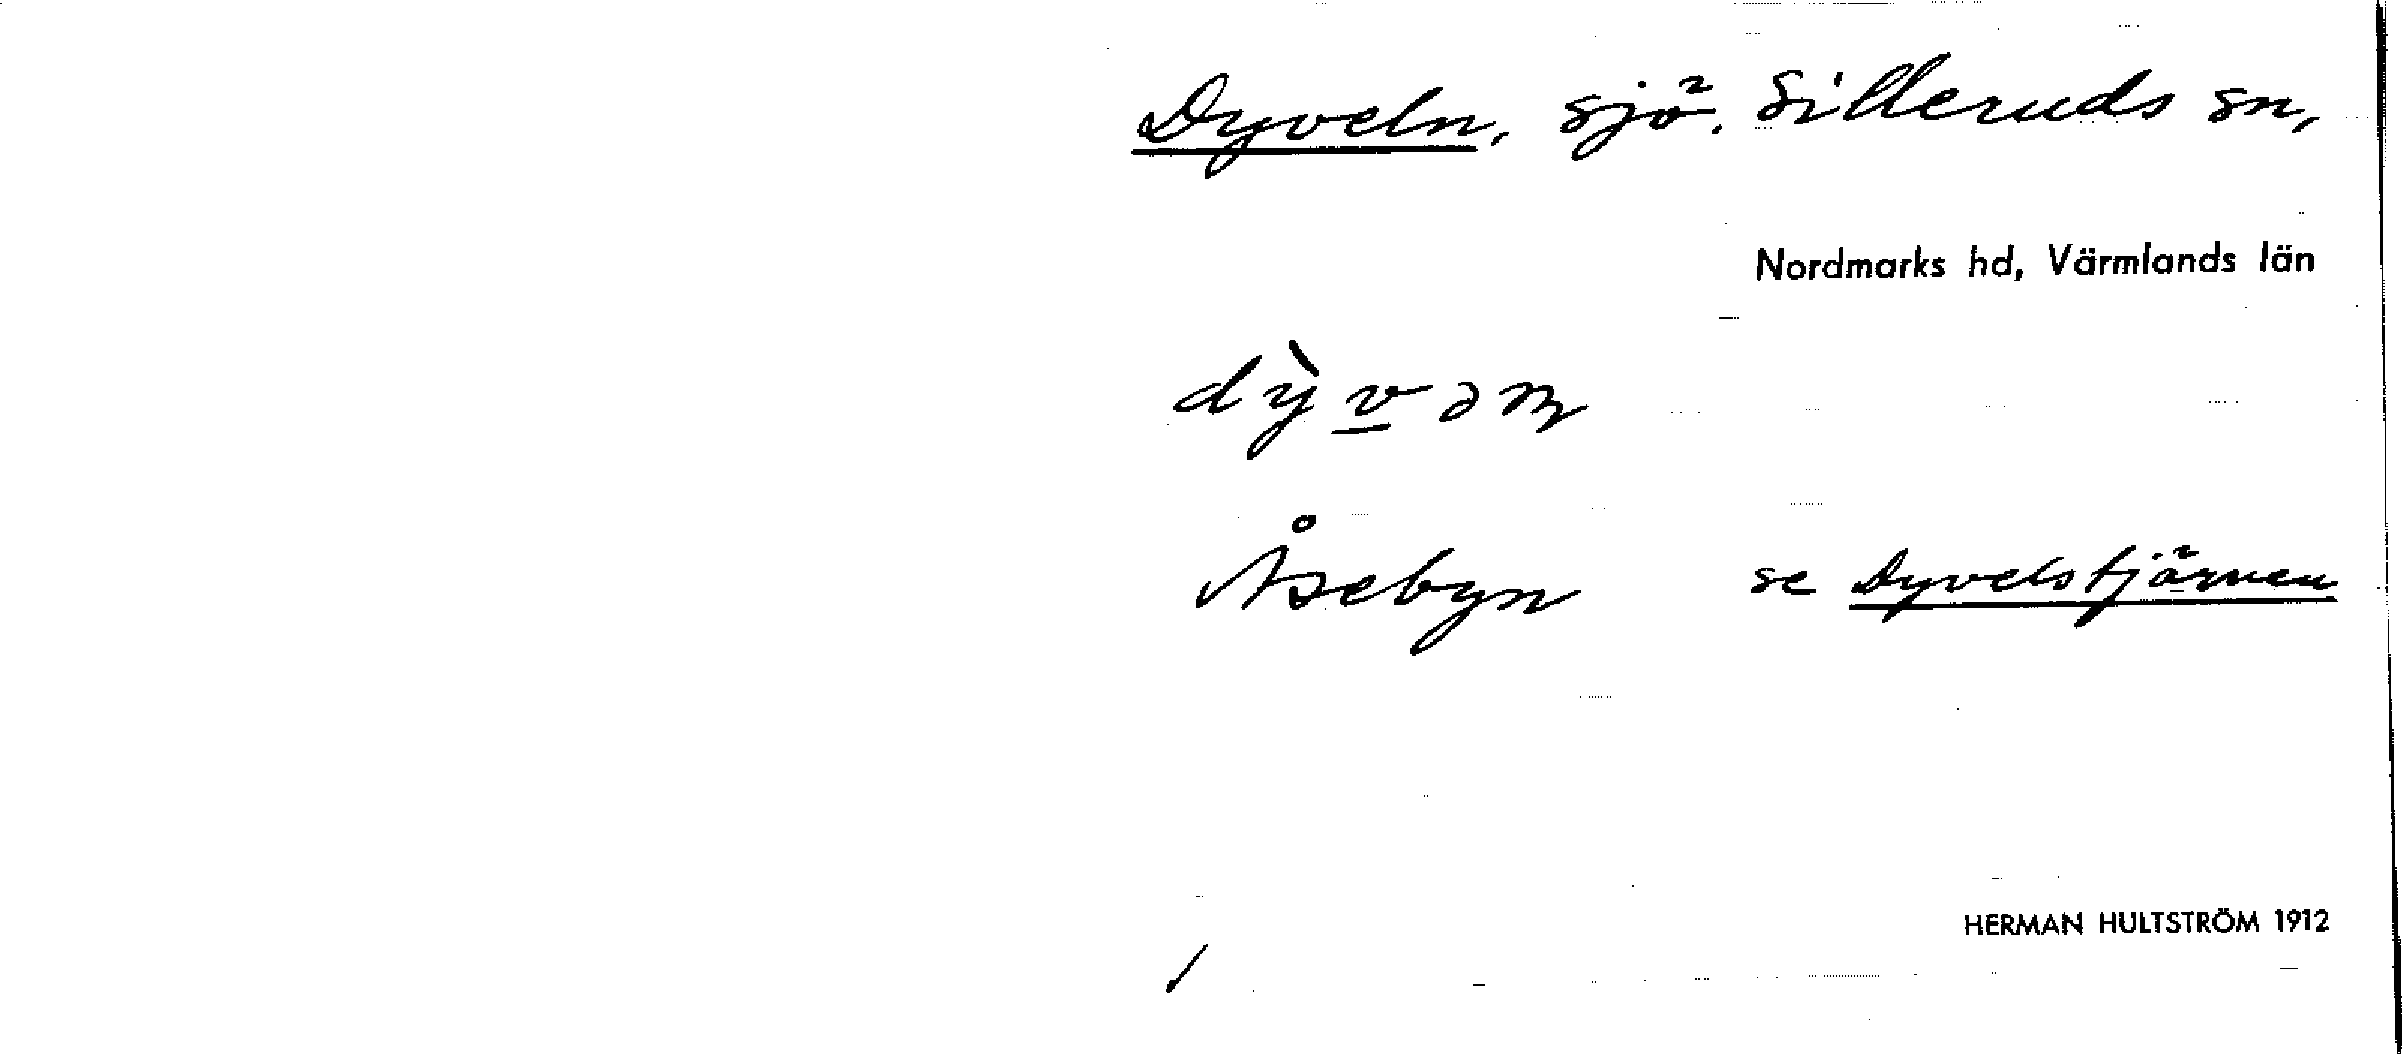 Dyveln, sjö. Silleruds sn,
Nordmarks hd, Värmlands län
dỳvəɳ
Åsebyn se Dyvelstjärnen
HERMAN HULTSTRÖM 1912